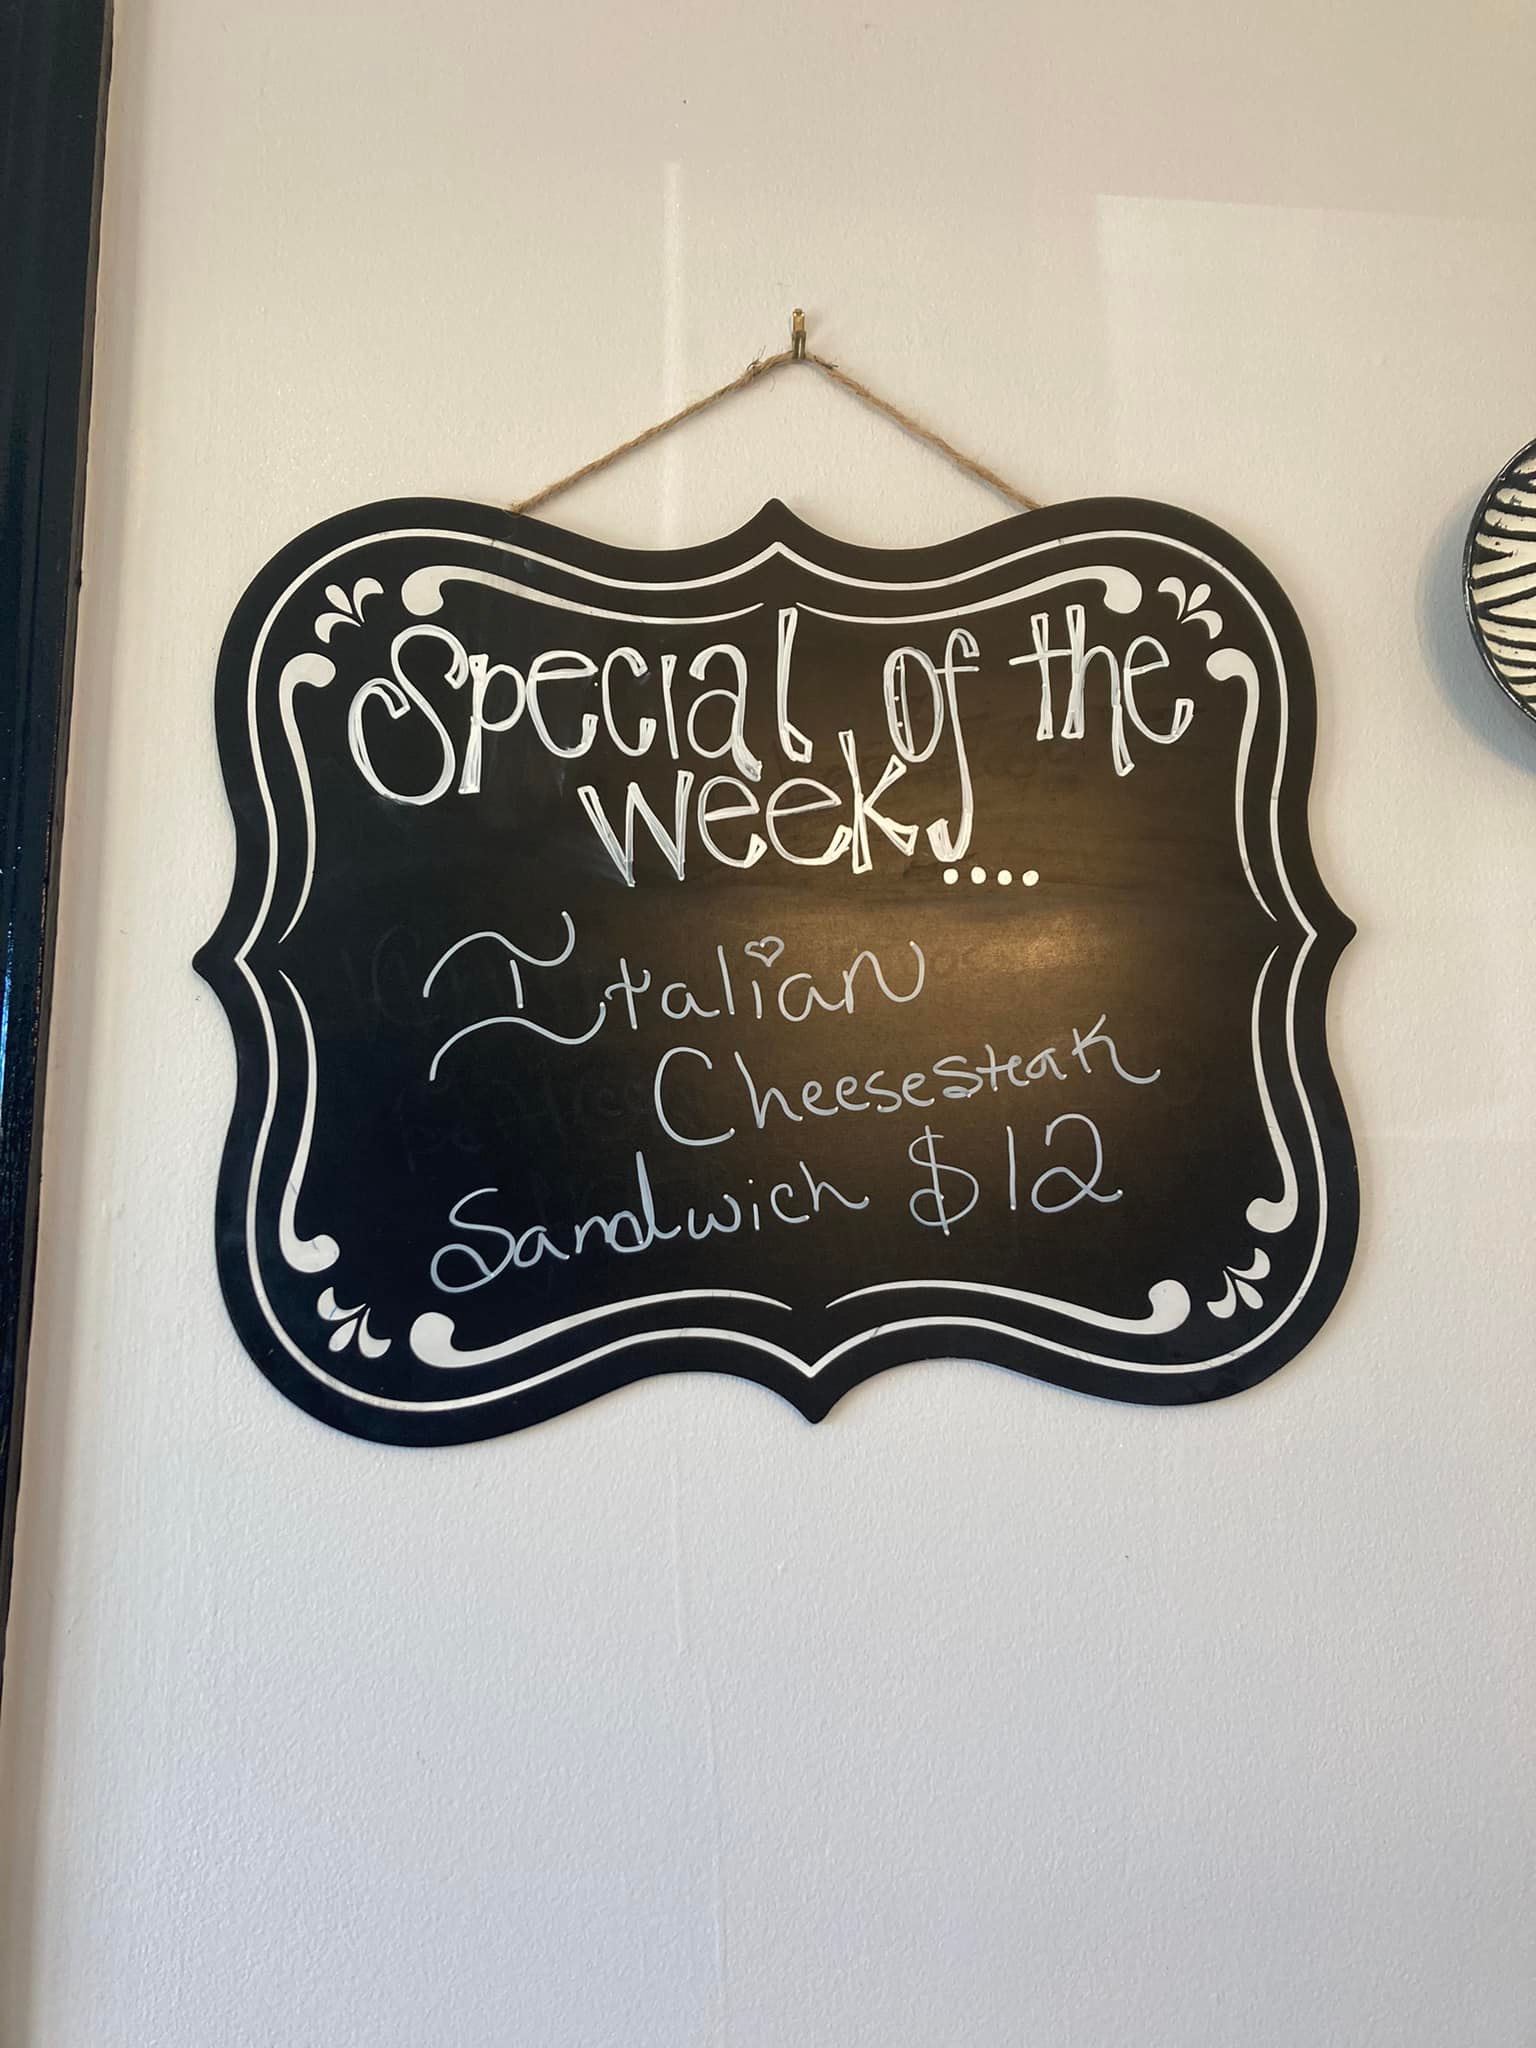 Special of the
week....
Italian
Cheesesteak
Sandwich $12